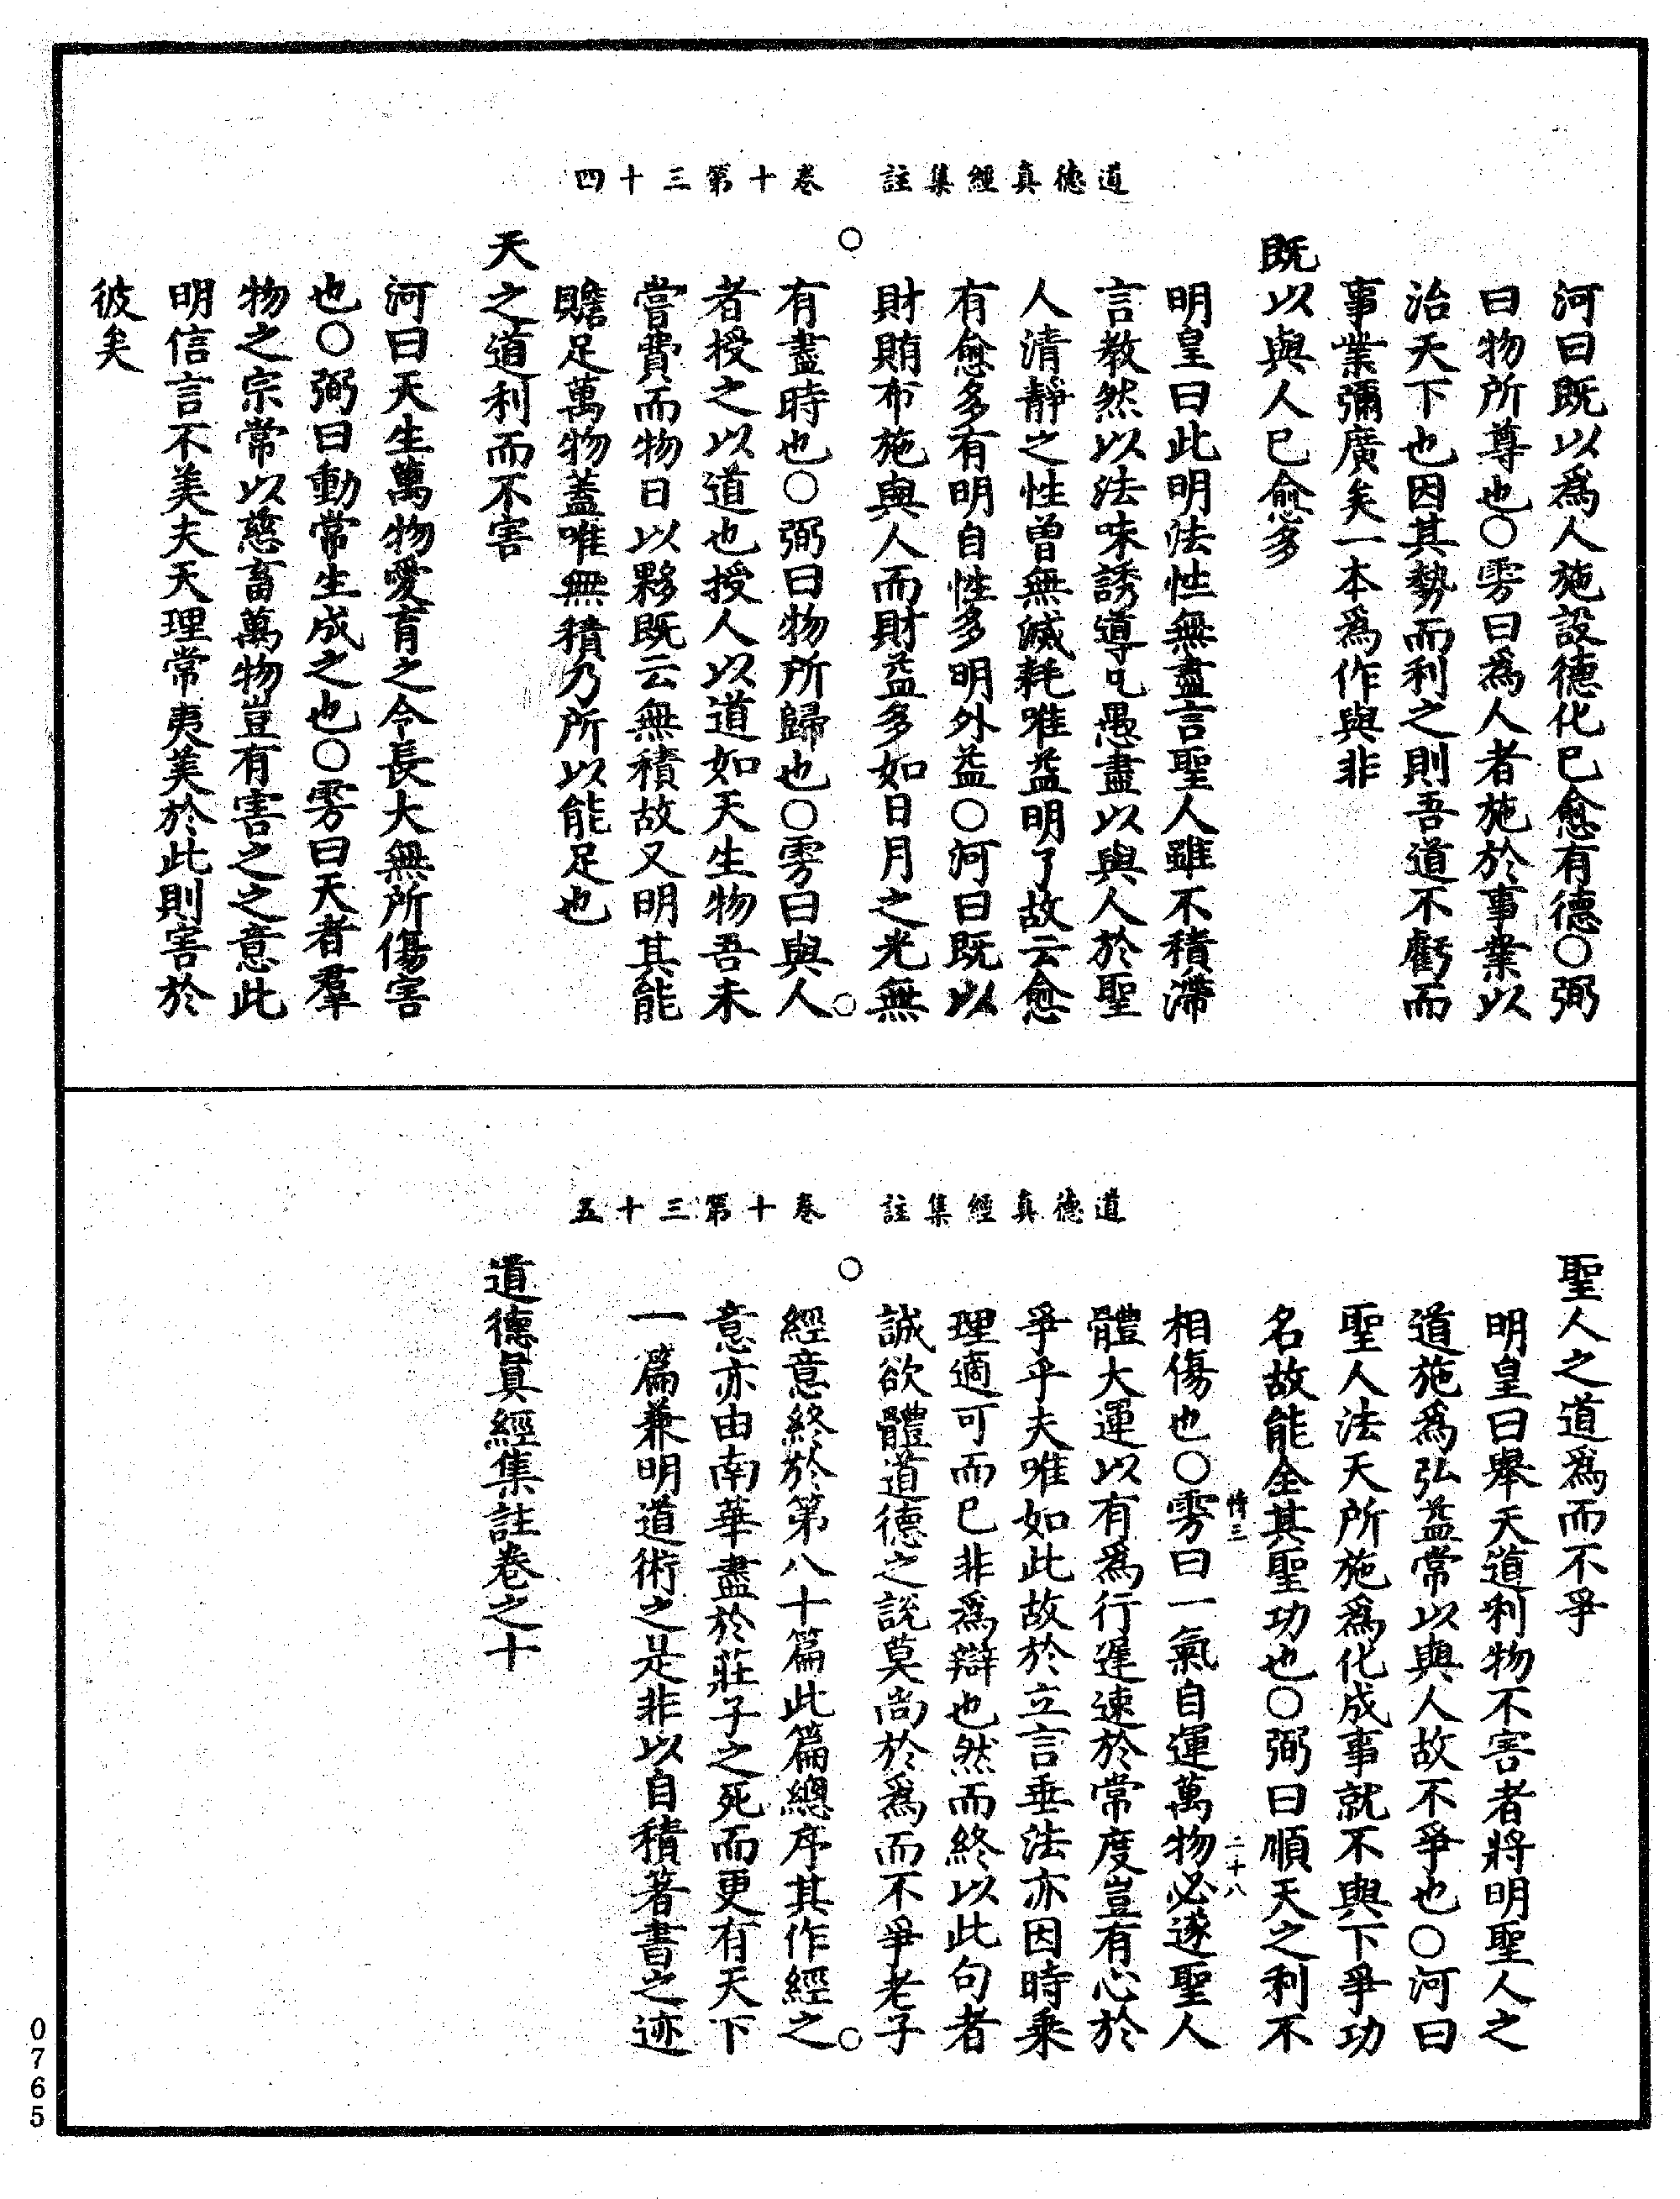 道德真經集註　卷十第三十四
河曰既以爲人施設德化已愈有德○弼
曰物所尊也○雱曰爲人者施於事業以
治天下也因其勢而利之則吾道不虧而
事業彌廣矣一本爲作與非
既以與人已愈多
明皇曰此明法性無盡言聖人雖不積滯
言教然以法味誘導凡愚盡以與人於聖
人清靜之性曾無減耗唯益明了故云愈
有愈多有明自性多明外益○河曰既以
財賄布施與人而財益多如日月之光無
有盡時也○弼曰物所歸也○雱曰與人
者授之以道也授人以道如天生物吾未
嘗費而物日以夥既云無積故又明其能
贍足萬物蓋唯無積乃所以能足也
天之道利而不害
河曰天生萬物愛育之令長大無所傷害
也○弼曰動常生成之也○雱曰天者羣
物之宗常以慈畜萬物豈有害之之意此
明信言不美夫天理常夷美於此則害於
彼矣
道德真經集註　卷十第三十五
聖人之道爲而不爭
明皇曰舉天道利物不害者將明聖人之
道施爲弘益常以與人故不爭也○河曰
聖人法天所施爲化成事就不與下爭功
名故能全其聖功也○弼曰順天之利不
二十八
相傷也○雱曰一氣自運萬物必遂聖人
體大運以有爲行遲速於常度豈有心於
爭乎夫唯如此故於立言垂法亦因時乘
理適可而已非爲辯也然而終以此句者
誠欲體道德之說莫尚於爲而不爭老子
經意終於第八十篇此篇總序其作經之
意亦由南華盡於莊子之死而更有天下
一篇兼明道術之是非以自積著書之迹
道德真經集註卷之十
0765